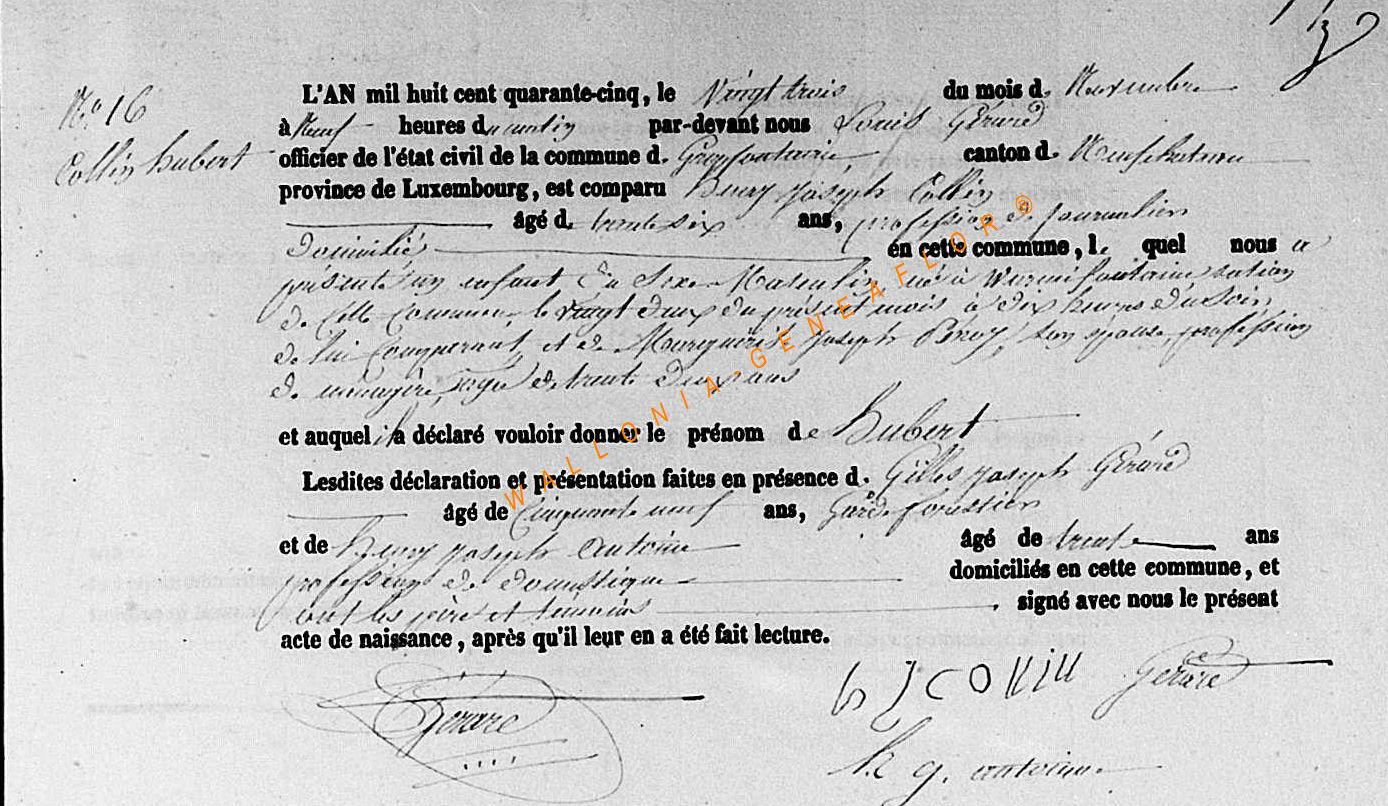 No 16
Collin hubert
L'AN mil huit cent quarante-cinq, le Vingt trois du mois d. Novembre
à Neuf heures du matin par-devant nous Louis Gérard
officier de l'état civil de la commune d. Grapfontaine canton d. Neufchateau
province de Luxembourg, est comparu henry joseph Collin
âgé d. trente six ans, profession de journalier
domicilié en cette commune, le quel nous a
présenté un enfant du Sexe Masculin, né à Warmifontaine section
de Cette Commune, le vingt deux du présent mois à dix heures du Soir
de lui Comparant et de Marguerite joseph Son epouse, profession
de ménagère, agée de trente Deux ans
et auquel il a déclaré vouloir donner le prénom de hubert
Lesdites déclaration et présentation faites en présence d. Gilles joseph Gérard
âgé de Cinquante neuf ans, Garde forestier
et de henry joseph antoine âgé de trente ans
profession de domestique domiciliés en cette commune, et
ont les père et temoins signé avec nous le présent
acte de naissance, après qu'il leur en a été fait lecture.
h J COllin Gérard
Gérard
h j. antoine
WALLONIA-GENEAFLOR®